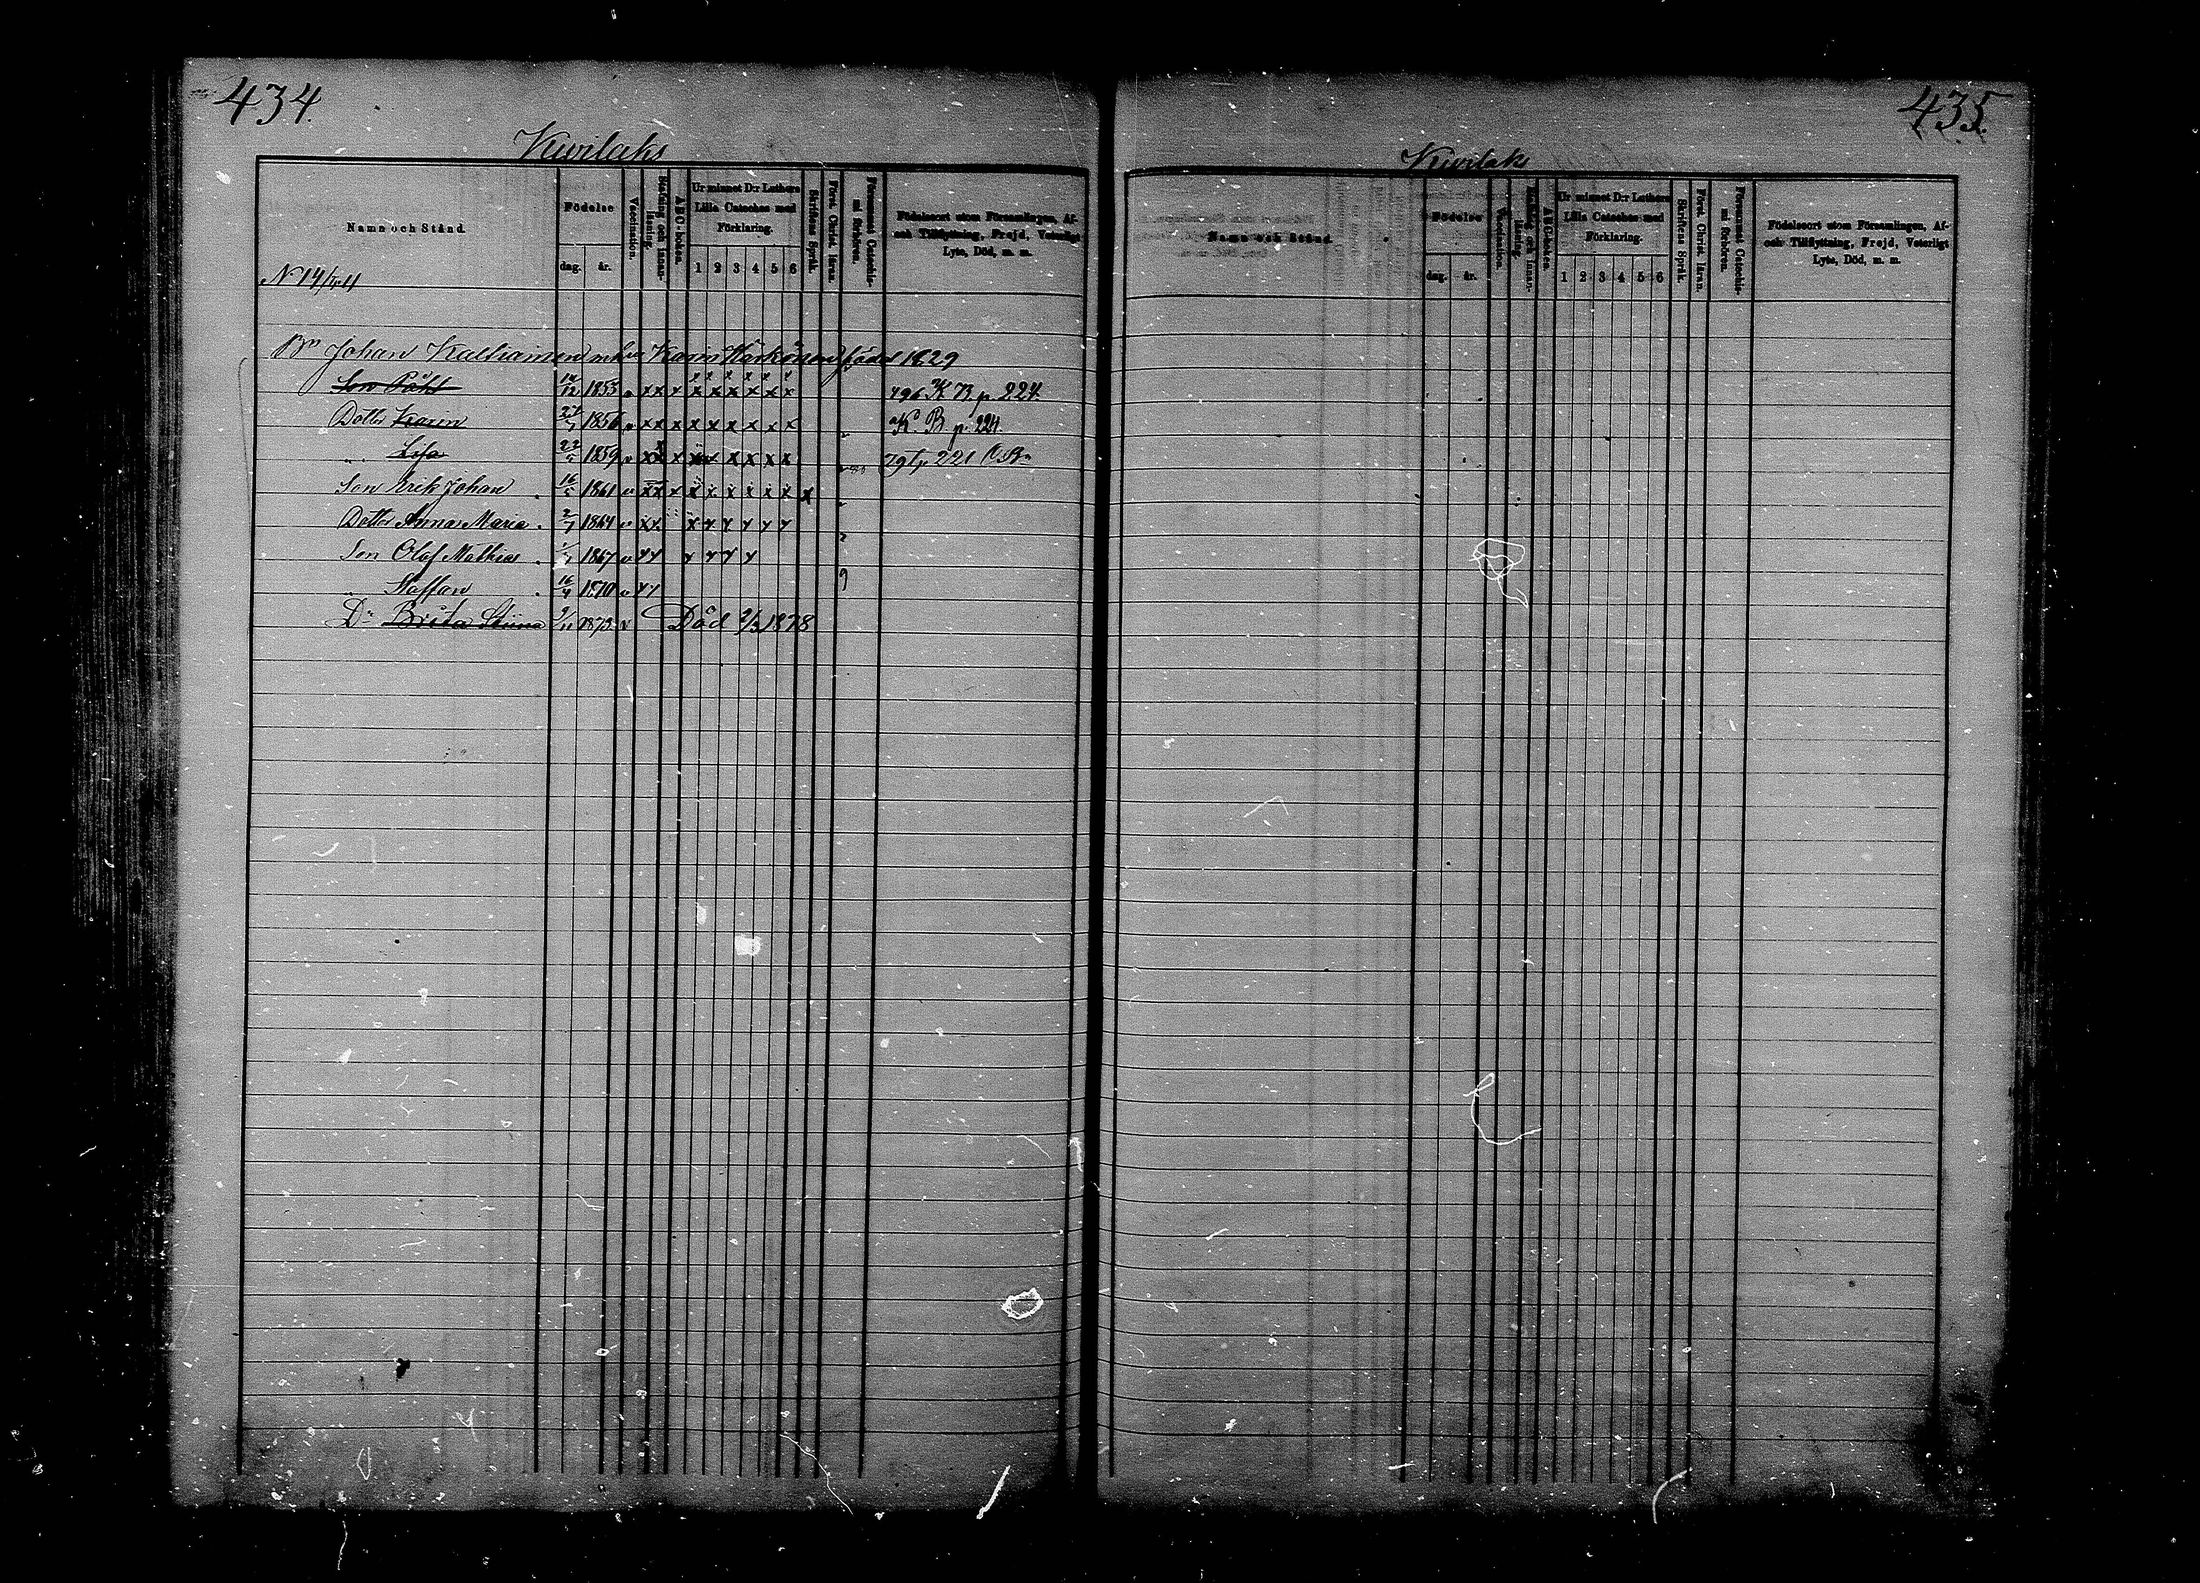 434.
Kuvilaks
Namn och Stånd.
Födelse
dag. år.
Vaccination.
Stafning och innanläsning.
A B C-boken.
Ur minnet D:r Luthers Lilla Cateches med Förklaring.
1 2 3 4 5 6
Skriftens Språk.
Först. Christ. läran.
Försummat Catechismi förhören.
Födelseort utom Församlingen, Af-
och Tillflyttning, Frejd, Veterligt
Lyte, Död, m. m.
N 14
Bn Johan Kalliainen m hu Karin Härkönen född 1829
Son Påhl 1855 v x x x x x x x x x K B p 224.
Dotter Karin 1856 v x x x x x x x x x K B p 224
" Lisa 22 1859 v x x x x x x x 221
Son Erik Johan 16 1861 v x x x x x x x x x x
Dotter Anna Maria 2/7 1864 v x x x x x x x x
Son Olof Mathias 1867 v x x x x x x
" Staffan 16/4 1870 v x x
Dr Brita Stiina 9/11 1873 v Död 2/3 1878
435.
Kuvilaks
Namn och Stånd.
Födelse
dag. år.
Vaccination.
Stafning och innanläsning.
A B C-boken.
Ur minnet D:r Luthers Lilla Cateches med Förklaring.
1 2 3 4 5 6
Skriftens Språk.
Först. Christ. läran.
Försummat Catechismi förhören.
Födelseort utom Församlingen, Af-
och Tillflyttning, Frejd, Veterligt
Lyte, Död, m. m.